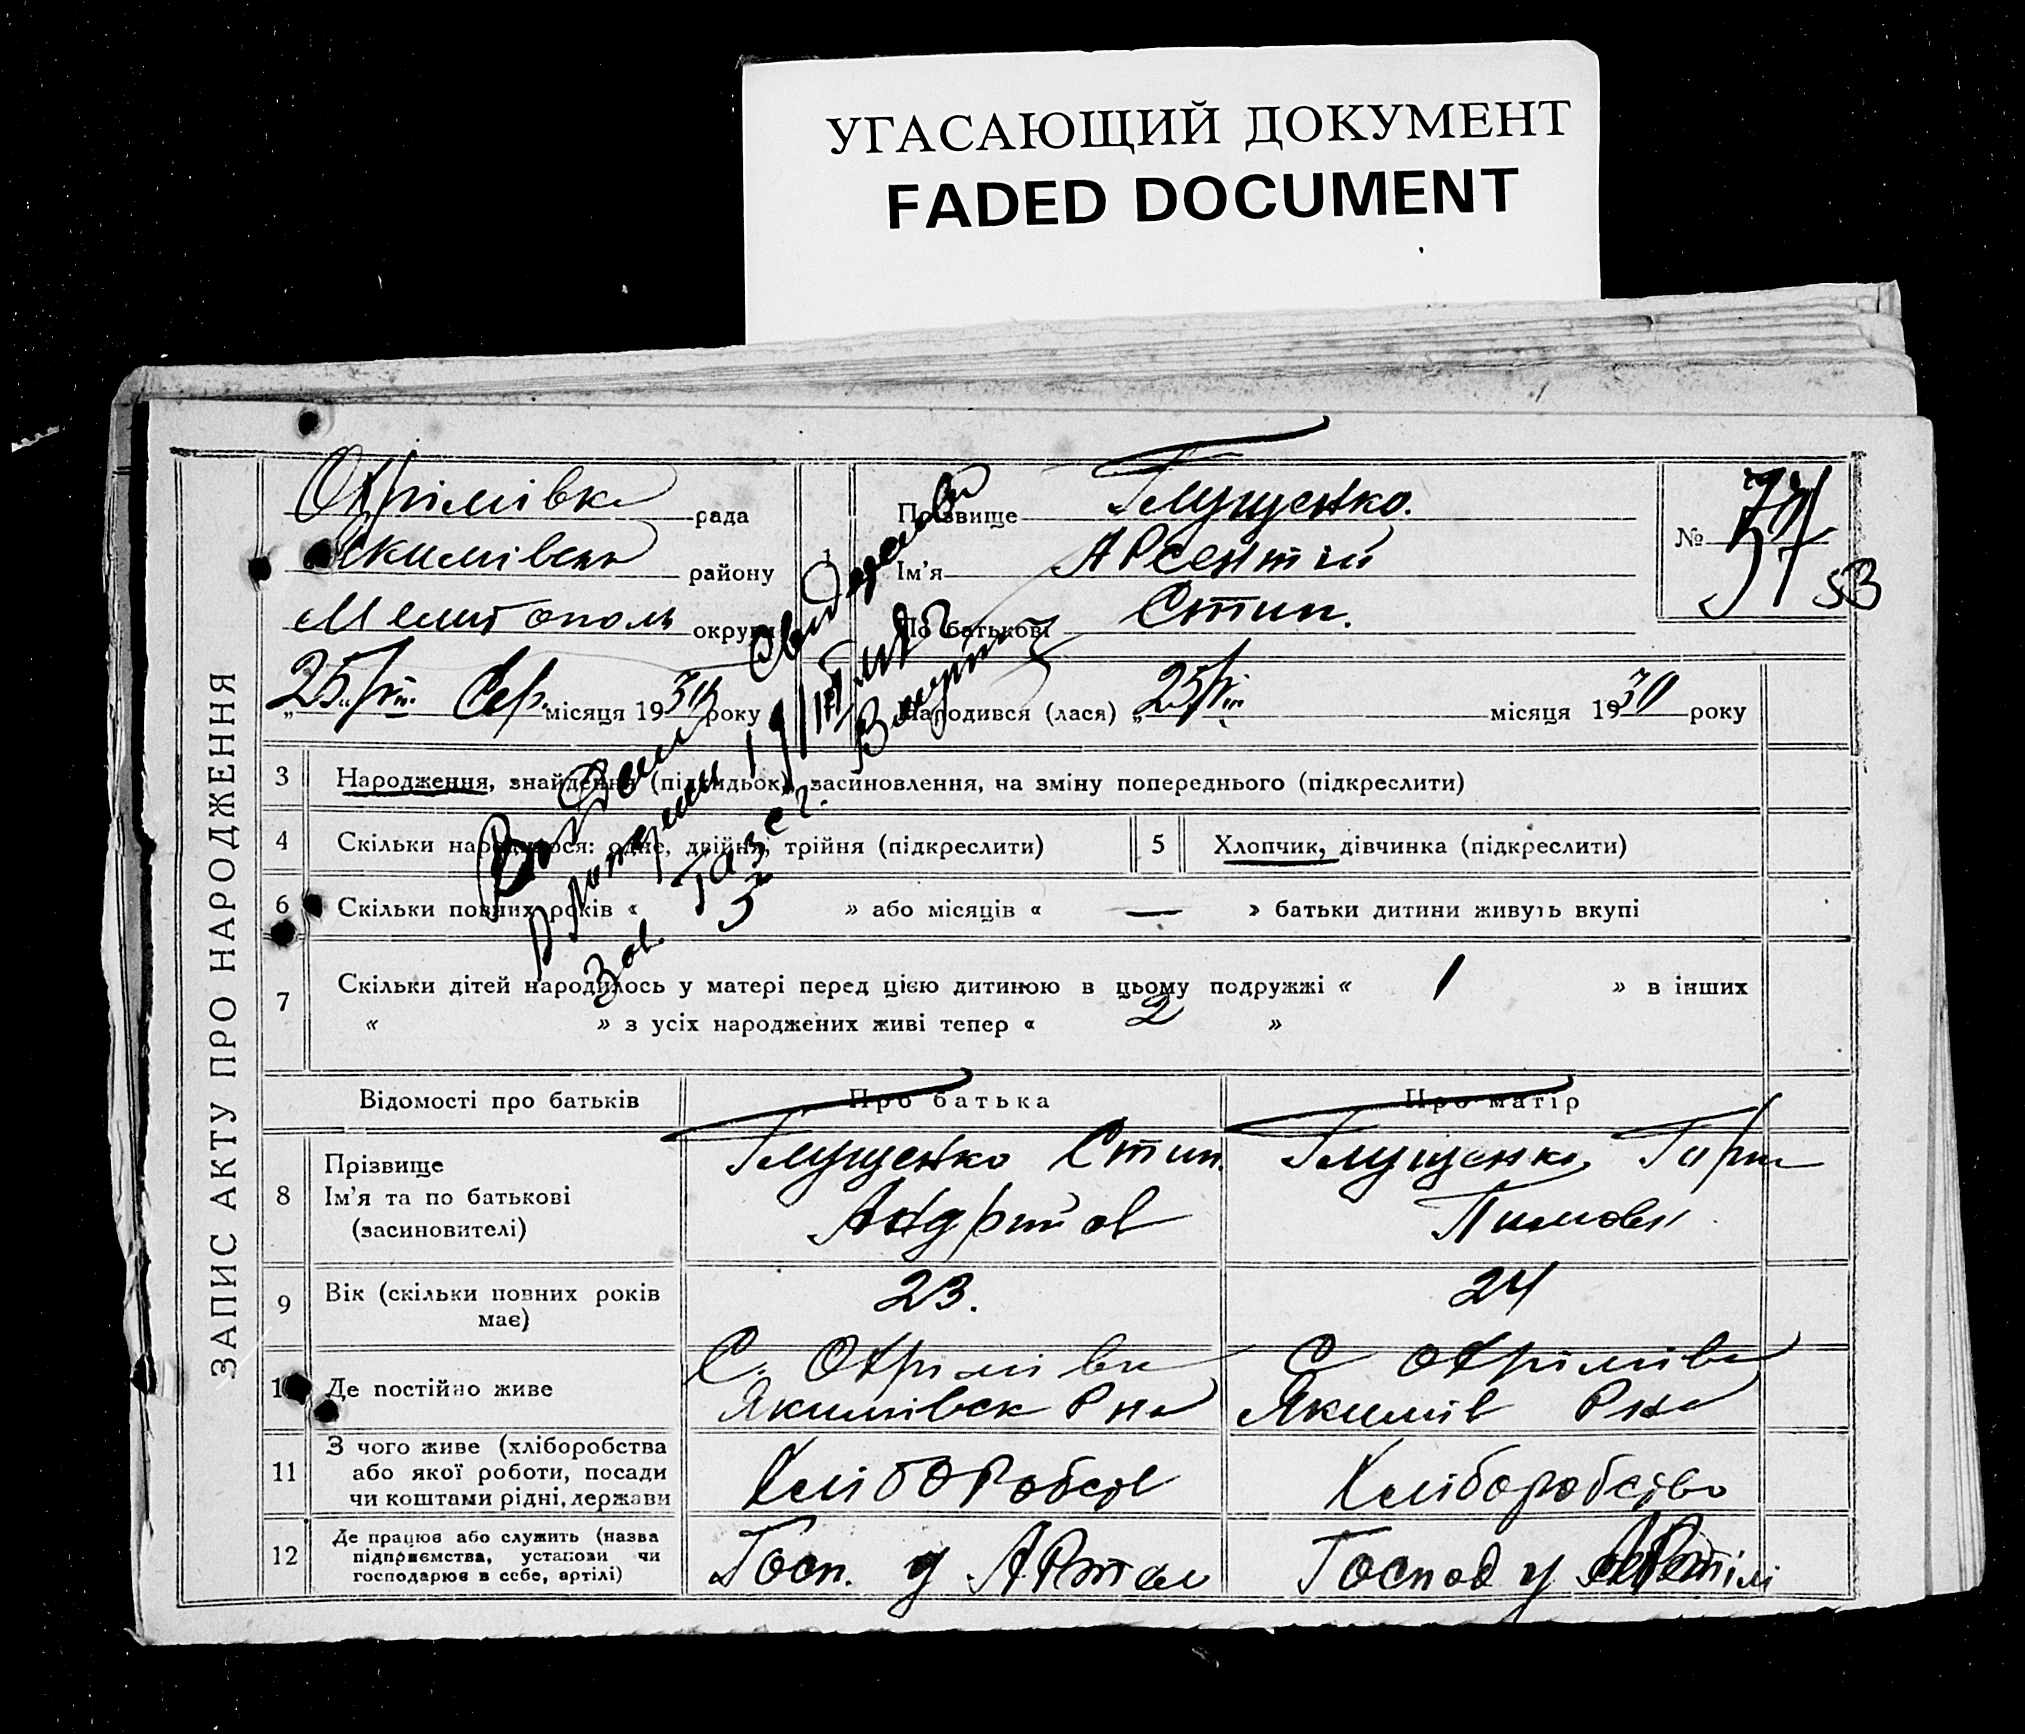 УГАСАЮЩИЙ ДОКУМЕНТ
FADED DOCUMENT
ЗАПИС АКТУ ПРО НАРОДЖЕННЯ
Охрімівка рада
Якимівськ району
Мелитополь округи
Прізвище Глущенко.
Ім'я Арсентій
По батькові Стип.
№ 37
53
„25/VIII Сер. місяця 1930 року
Народився (лася) „25/VIII місяця 1930 року
3 Народження, знайдення (підкидьок), засиновлення, на зміну попереднього (підкреслити)
4 Скільки народилося: одне, двійня, трійня (підкреслити)
5 Хлопчик, дівчинка (підкреслити)
6 Скільки повних років « » або місяців « — » батьки дитини живуть вкупі
7 Скільки дітей народилось у матері перед цією дитиною в цьому подружжі « 1 » в інших
« » з усіх народжених живі тепер « 2 »
Відомості про батьків
Про батька
Про матір
8 Прізвище
Ім'я та по батькові
(засиновителі)
Глущенко Стип.
Андрийов
Глущенко
9 Вік (скільки повних років
має)
23.
24
10 Де постійно живе
С. Охрімівка
Якимівск Рна
С Охрімівка
Якимів Рна
11 З чого живе (хліборобства
або якої роботи, посади
чи коштами рідні, держави
Хліборобств
Хліборобство
12 Де працює або служить (назва
підприємства, установи чи
господарює в себе, артілі)
Госп. у Артели
Господ у Артілі